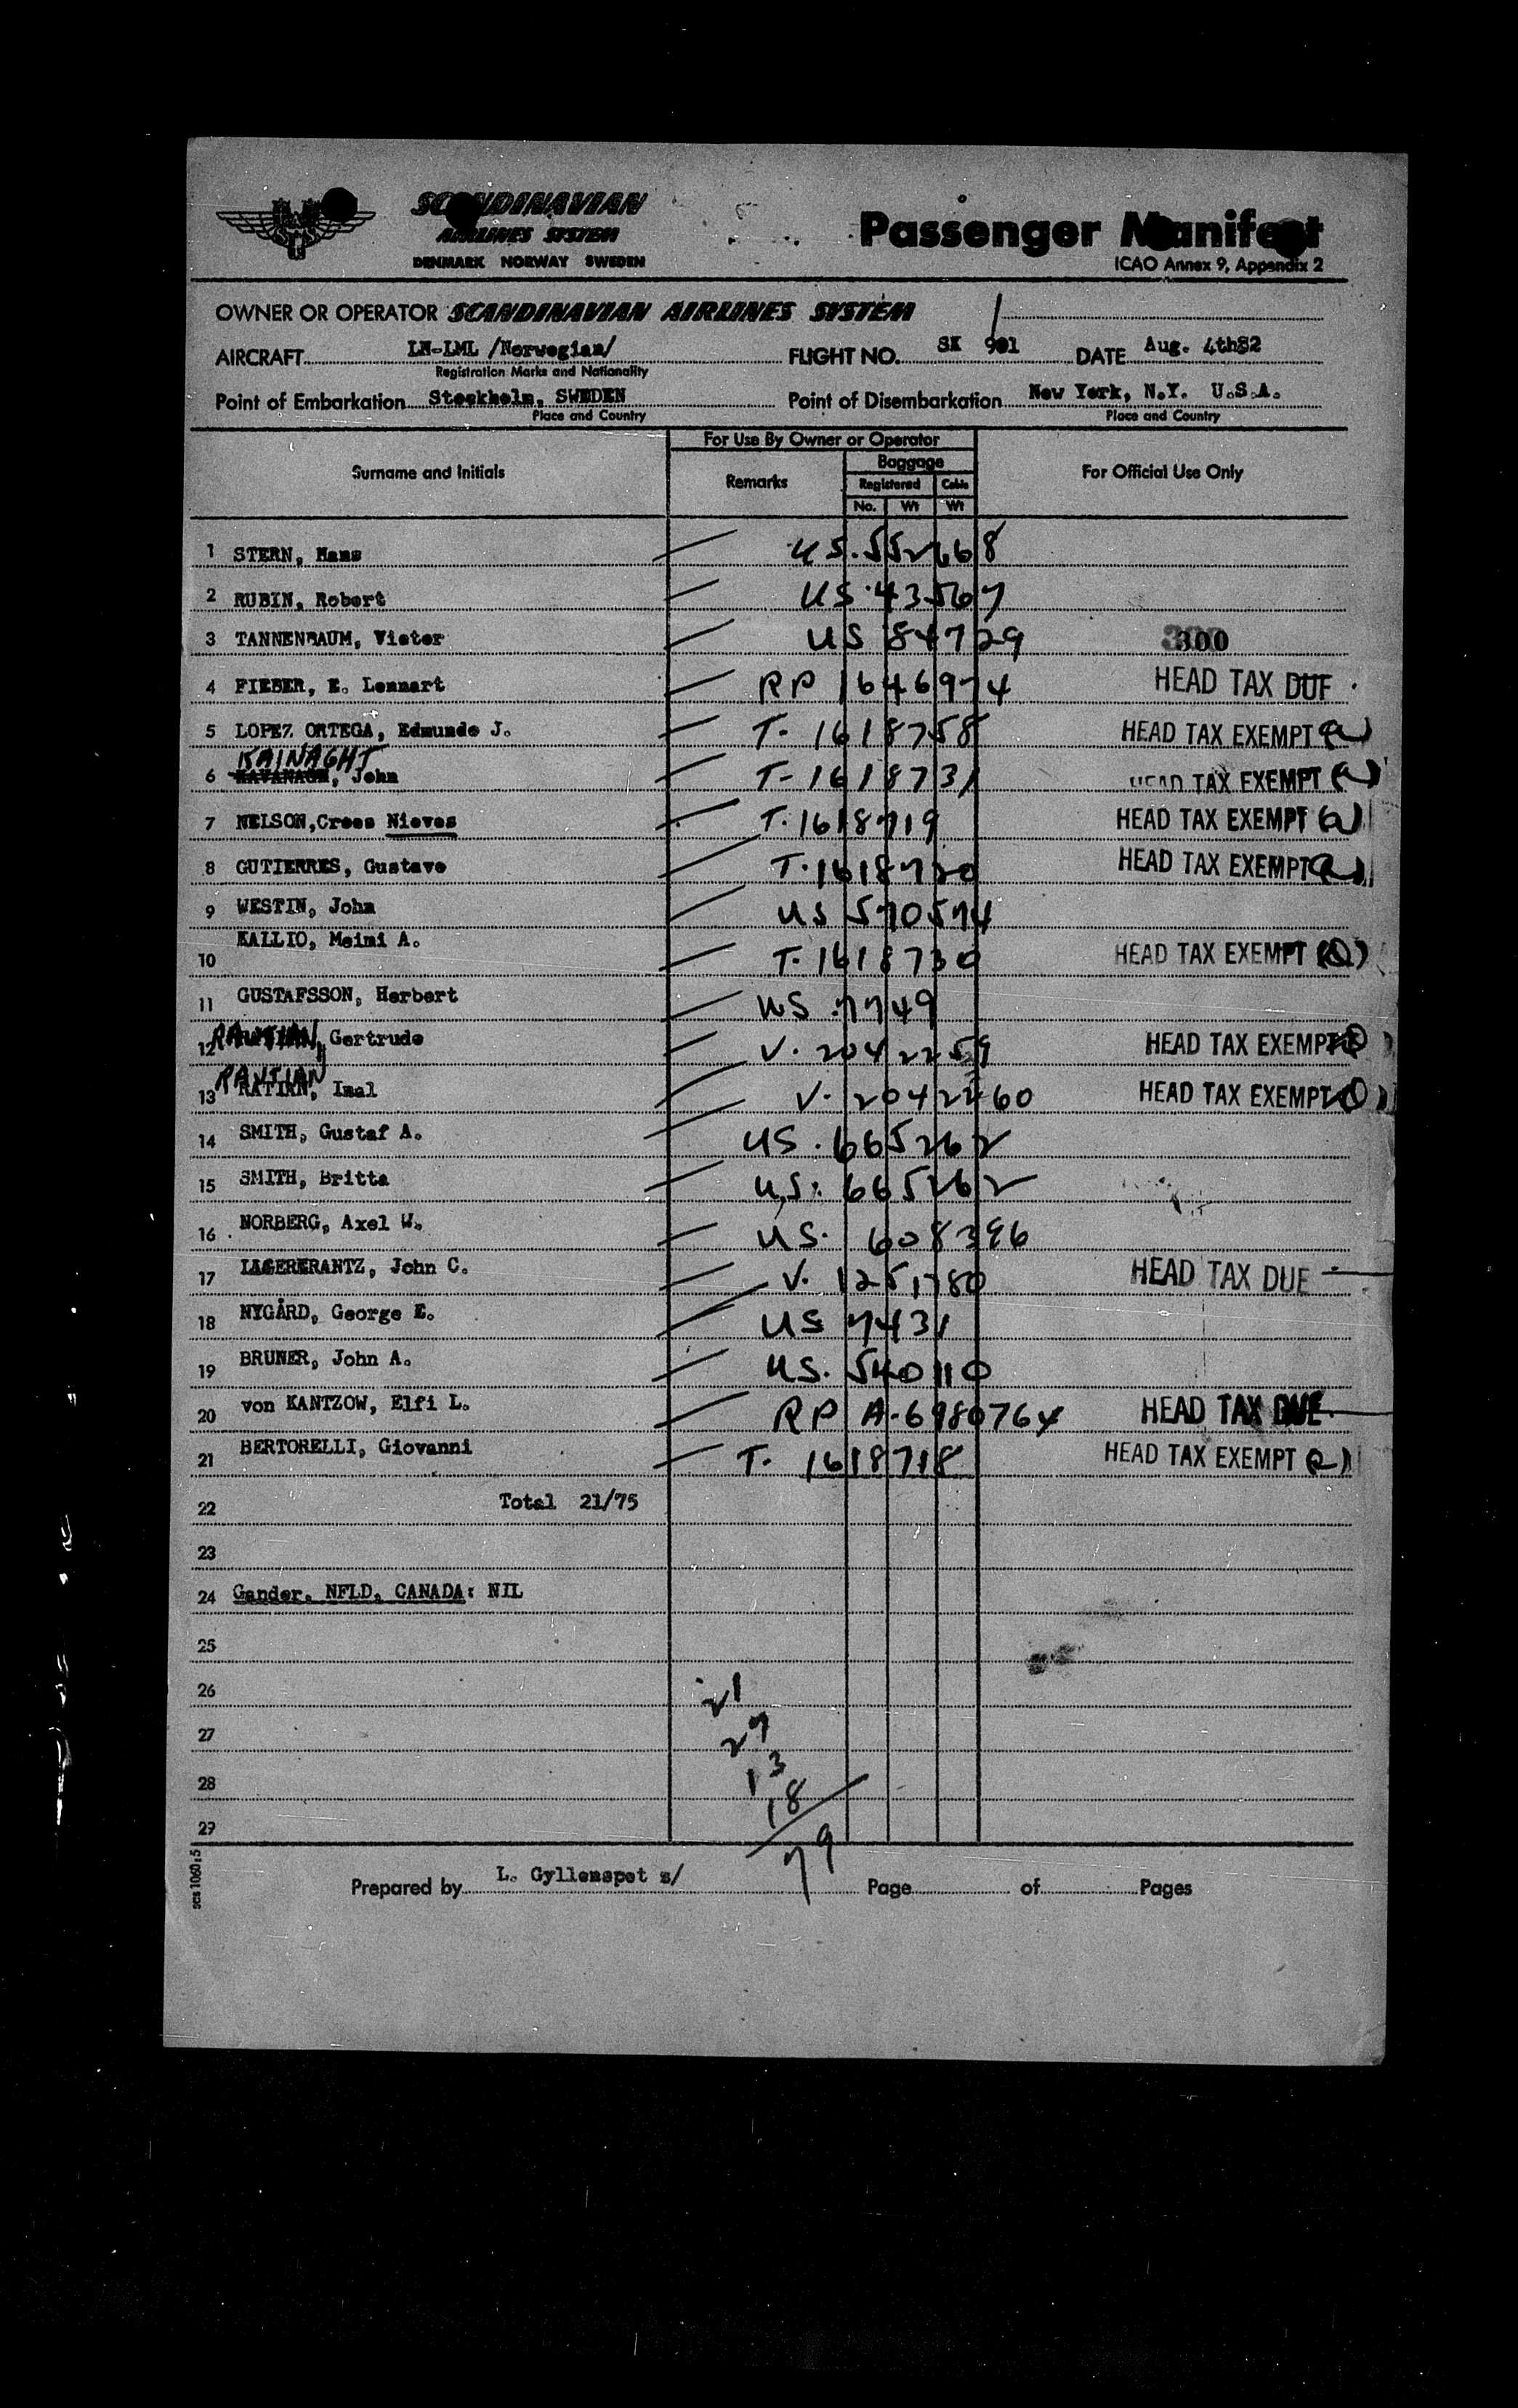 SCANDINAVIAN
AIRLINES SYSTEM
DENMARK NORWAY SWEDEN
Passenger Manifest
ICAO Annex 9, Appendix 2
OWNER OR OPERATOR SCANDINAVIAN AIRLINES SYSTEM
AIRCRAFT LN-LML /Norwegian/ FLIGHT NO. SK 901 DATE Aug. 4th52
Registration Marks and Nationality
Point of Embarkation Stockholm, SWEDEN Point of Disembarkation New York, N.Y. U.S.A.
Place and Country Place and Country
For Use By Owner or Operator
Surname and Initials Remarks Baggage For Official Use Only
Registered Cabin
No. Wt Wt
1 STERN, Hans US. 552668
2 RUBIN, Robert US. 43567
3 TANNENBAUM, Victor US 84729 300
4 FIEBER, E. Lennart RP 1646974 HEAD TAX DUE
5 LOPEZ ORTEGA, Edmundo J. T- 1618758 HEAD TAX EXEMPT
KAINAGHT
6 KAVANAGH, John T- 1618731 HEAD TAX EXEMPT
7 NELSON, Crees Nieves T. 1618719 HEAD TAX EXEMPT
8 GUTIERRES, Gustavo T. 1618720 HEAD TAX EXEMPT
9 WESTIN, John US 570574
10 KALLIO, Meimi A. T- 1618730 HEAD TAX EXEMPT
11 GUSTAFSSON, Herbert US. 7749
12 RAUTIAN, Gertrude V. 2042259 HEAD TAX EXEMPT
RAUTIAN
13 RATIAN, Imal V. 2042260 HEAD TAX EXEMPT
14 SMITH, Gustaf A. US. 665262
15 SMITH, Britta U.S. 665262
16 NORBERG, Axel W. US. 608396
17 LAGERKRANTZ, John C. V. 1251780 HEAD TAX DUE
18 NYGÅRD, George E. US 7431
19 BRUNER, John A. US. 540110
20 von KANTZOW, Elfi L. RP A-6980764 HEAD TAX DUE
21 BERTORELLI, Giovanni T. 1618718 HEAD TAX EXEMPT
22 Total 21/75
23
24 Gander, NFLD, CANADA: NIL
25
26 21
27 27
28 13
18
29
79
Prepared by L. Gyllenspet s/ Page of Pages
scs 1060:5